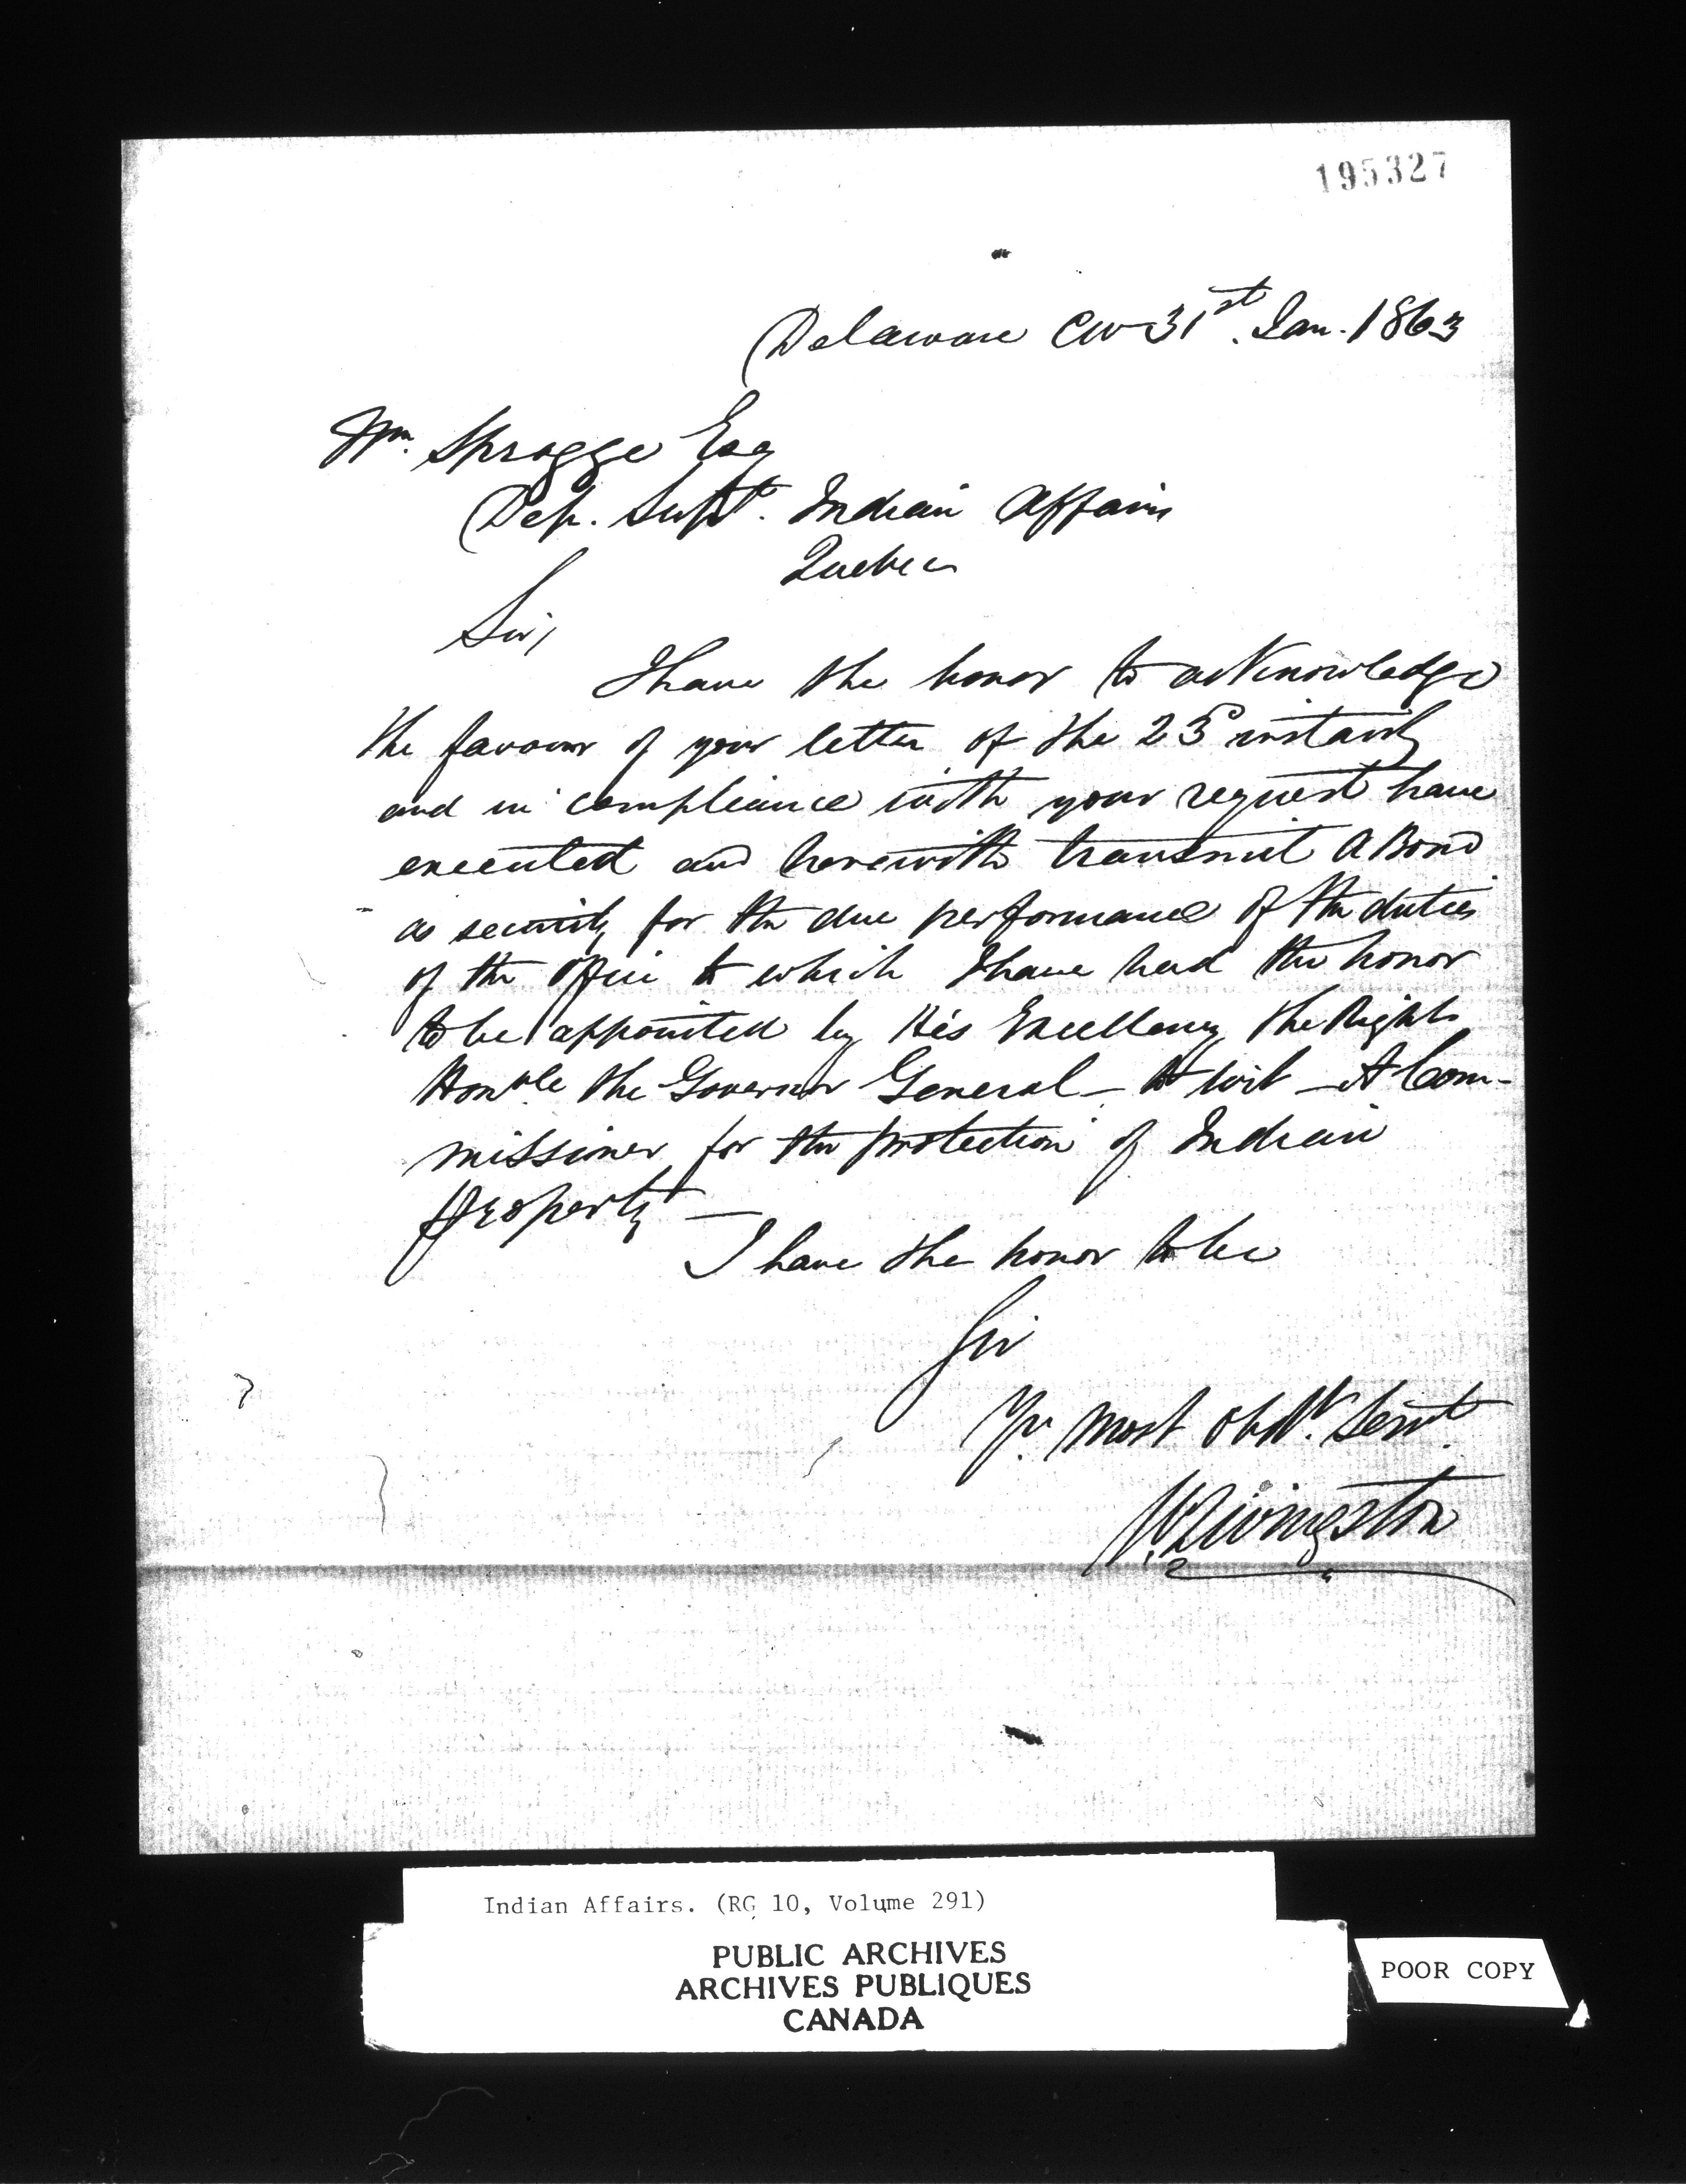 195327
Delaware CW 31st. Jan. 1863
Wm. Spragge Esq
Dep. Supt. Indian Affairs
Quebec
Sir,
I have the honor to acknowledge
the favour of your letter of the 23d instant
and in compliance with your request have
executed and herewith transmit a Bond
as security for the due performance of the duties
of the Office to which I have had the honor
to be appointed by His Excellency the Right
Honble the Governor General - to wit - A Com-
missioner for the protection of Indian
property —
I have the honor to be
Sir
Yr. most obdt. Servt.
W. Livingston
Indian Affairs. (RG 10, Volume 291)
PUBLIC ARCHIVES
ARCHIVES PUBLIQUES
CANADA
POOR COPY